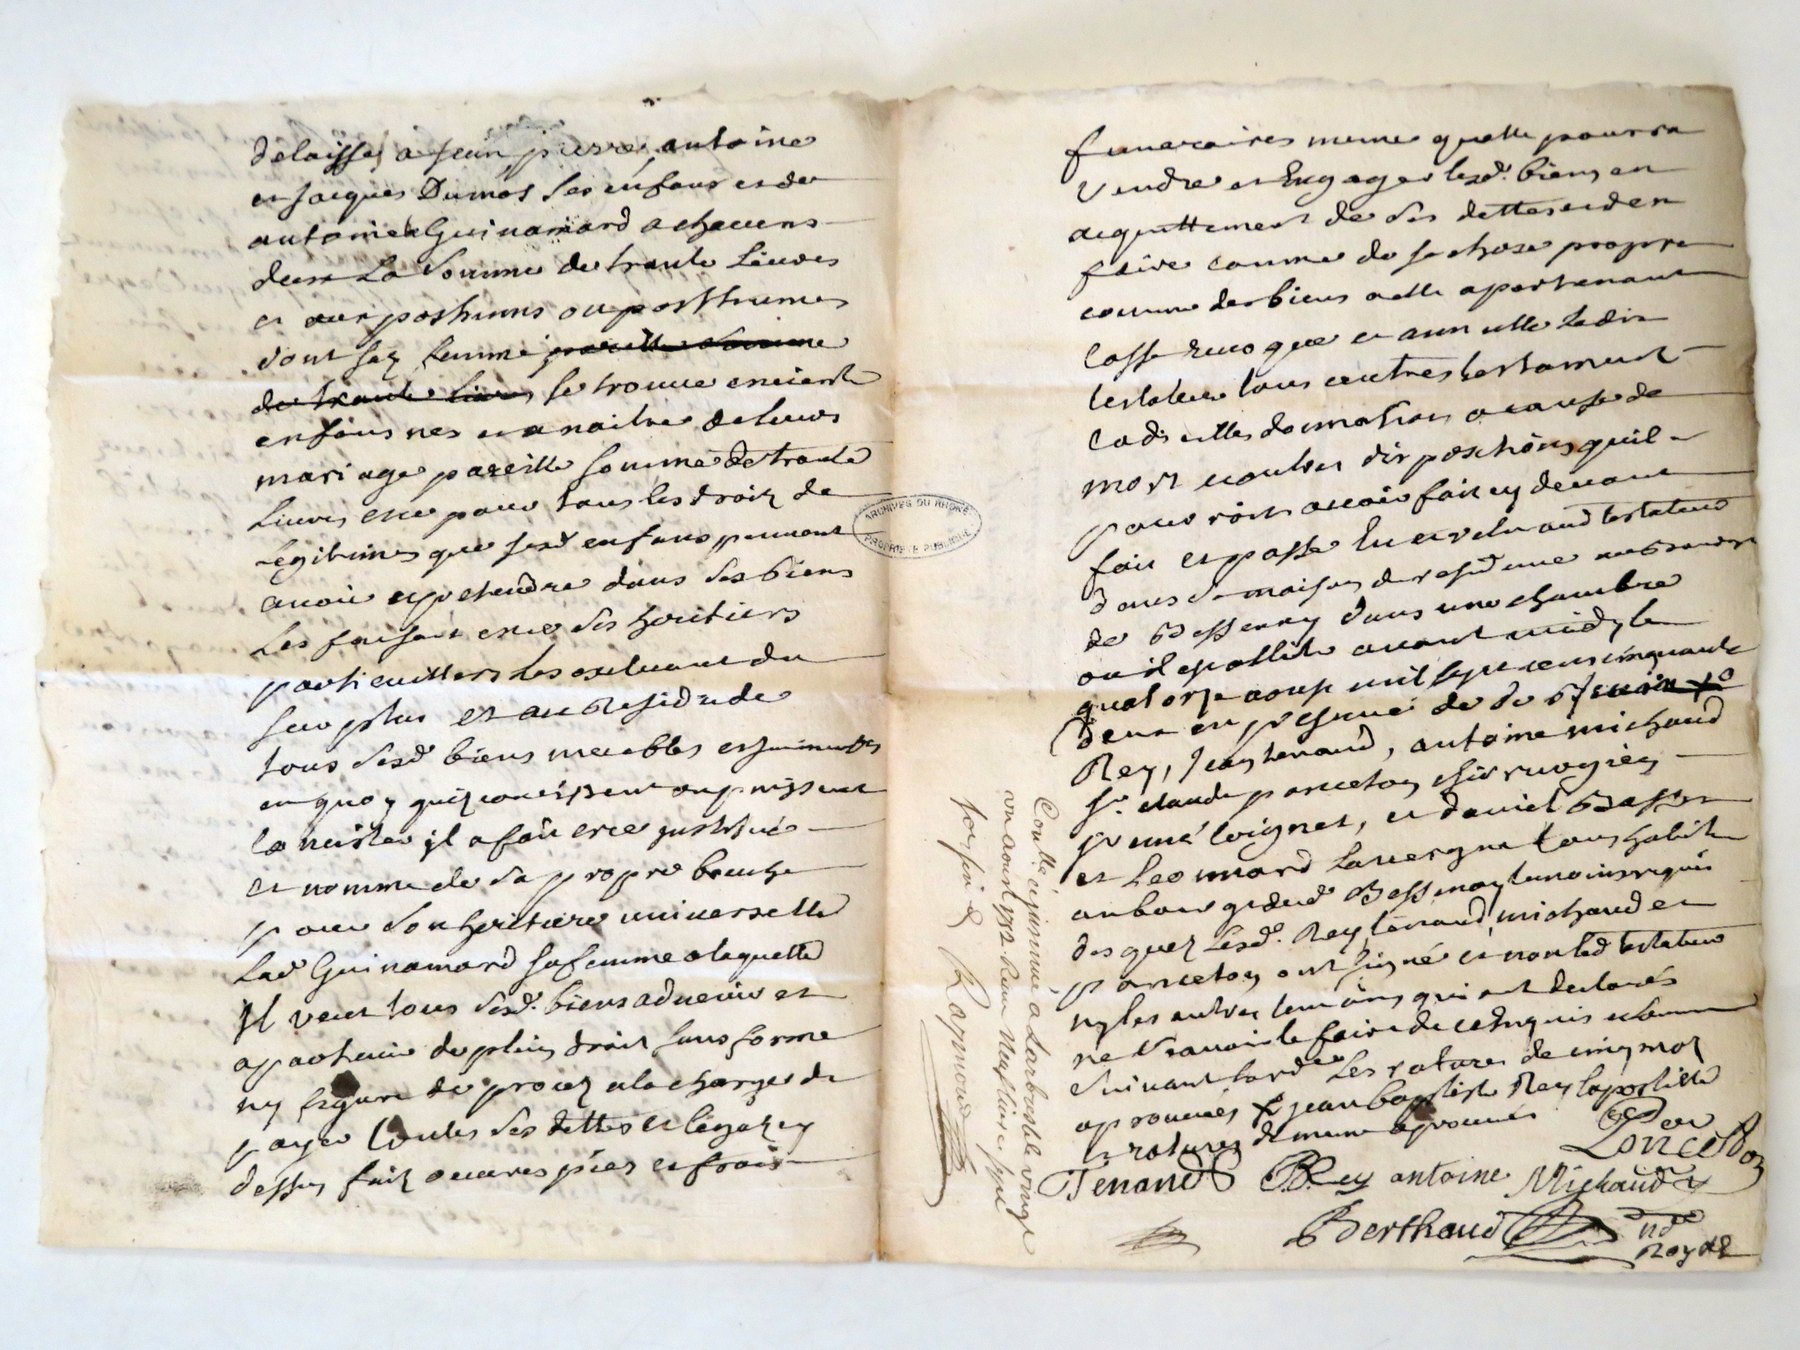 delaisse a jean pierre, antoine
et jacques Dumas ses enfans et de
antoinette Guinamard a chacuns
deux La Somme de trante Liuves
et aux postumes ou posthumes
dont saq femme pareille Somme
de trante Liures se trouue enceinte
enfans nes et a naitre de leurs
mariage pareille somme de trante
Liures et ce pour tous les droiz de
Legitimes que sesd enfans peuuent
auoir et pretendre dans ses biens
Les faisant et ce ses heritiers
particuilliers Les excluant du
surplus et au Residude
tous sesd. biens meubles et jmmeubles
en quoy quiz concistent ou puissent
concister jl a fait et ce justitué
et nommé de sa propre bouche
pour son heritiere uniuerselle
Lad Guinamard sa femme a laquelle
Jl veut tous sesd. biens aduenir et
apartenir de plein droit sans forme
ny figure de procez a la charge de
payer toutes ses dettes et legaz cy
dessus faiz oeuures pies et frais
funeraires meme quelle pourra
Vendre et Engager lesd. biens en
acquittement de ses dettes et den
faire comme de sa chose propre
comme des biens a elle apartenant
Casse reuoque et annulle Ledit
testateur tous autres testament
Codicilles donnations a cause de
mort et autres dispositions quil
pourroit auoir fait cy deuant
fait et passé Lu et relu aud testateur
dans sa maison de residence au bourg
de Bessenay dans une chambre
ou il est allité auant midy le
quatorze aoust mil sept cens cinquante
deux en presence de
Rey, Jean tenand, antoine michaud
Sr. claude ponceton chirurgien
jenné Coignet, et daniel Basset
et Leonnard Lauergne tous habitans
au bourg dud Bessenay temoins requis
desquez Lesd. Rey tenand, michaud et
ponceton ont signé et non led testateur
ny les autres temoins qui ont declarés
ne Sauoir le faire de ce enquis et somme
Suiuant lordce Les ratures de cinq moz
aprouuées jean baptiste Rey lapostille
et ratures de meme aprouués
Ponceton
Tenand B Rey antoine Michaud
Berthaud
nd
Royal
Contlé et jnsinué a Larbresle le vingt
un aout 1752. Reçu Neuf liures
Raymond
ARCHIVES DU RHÔNE
PROPRIÉTÉ PUBLIQUE